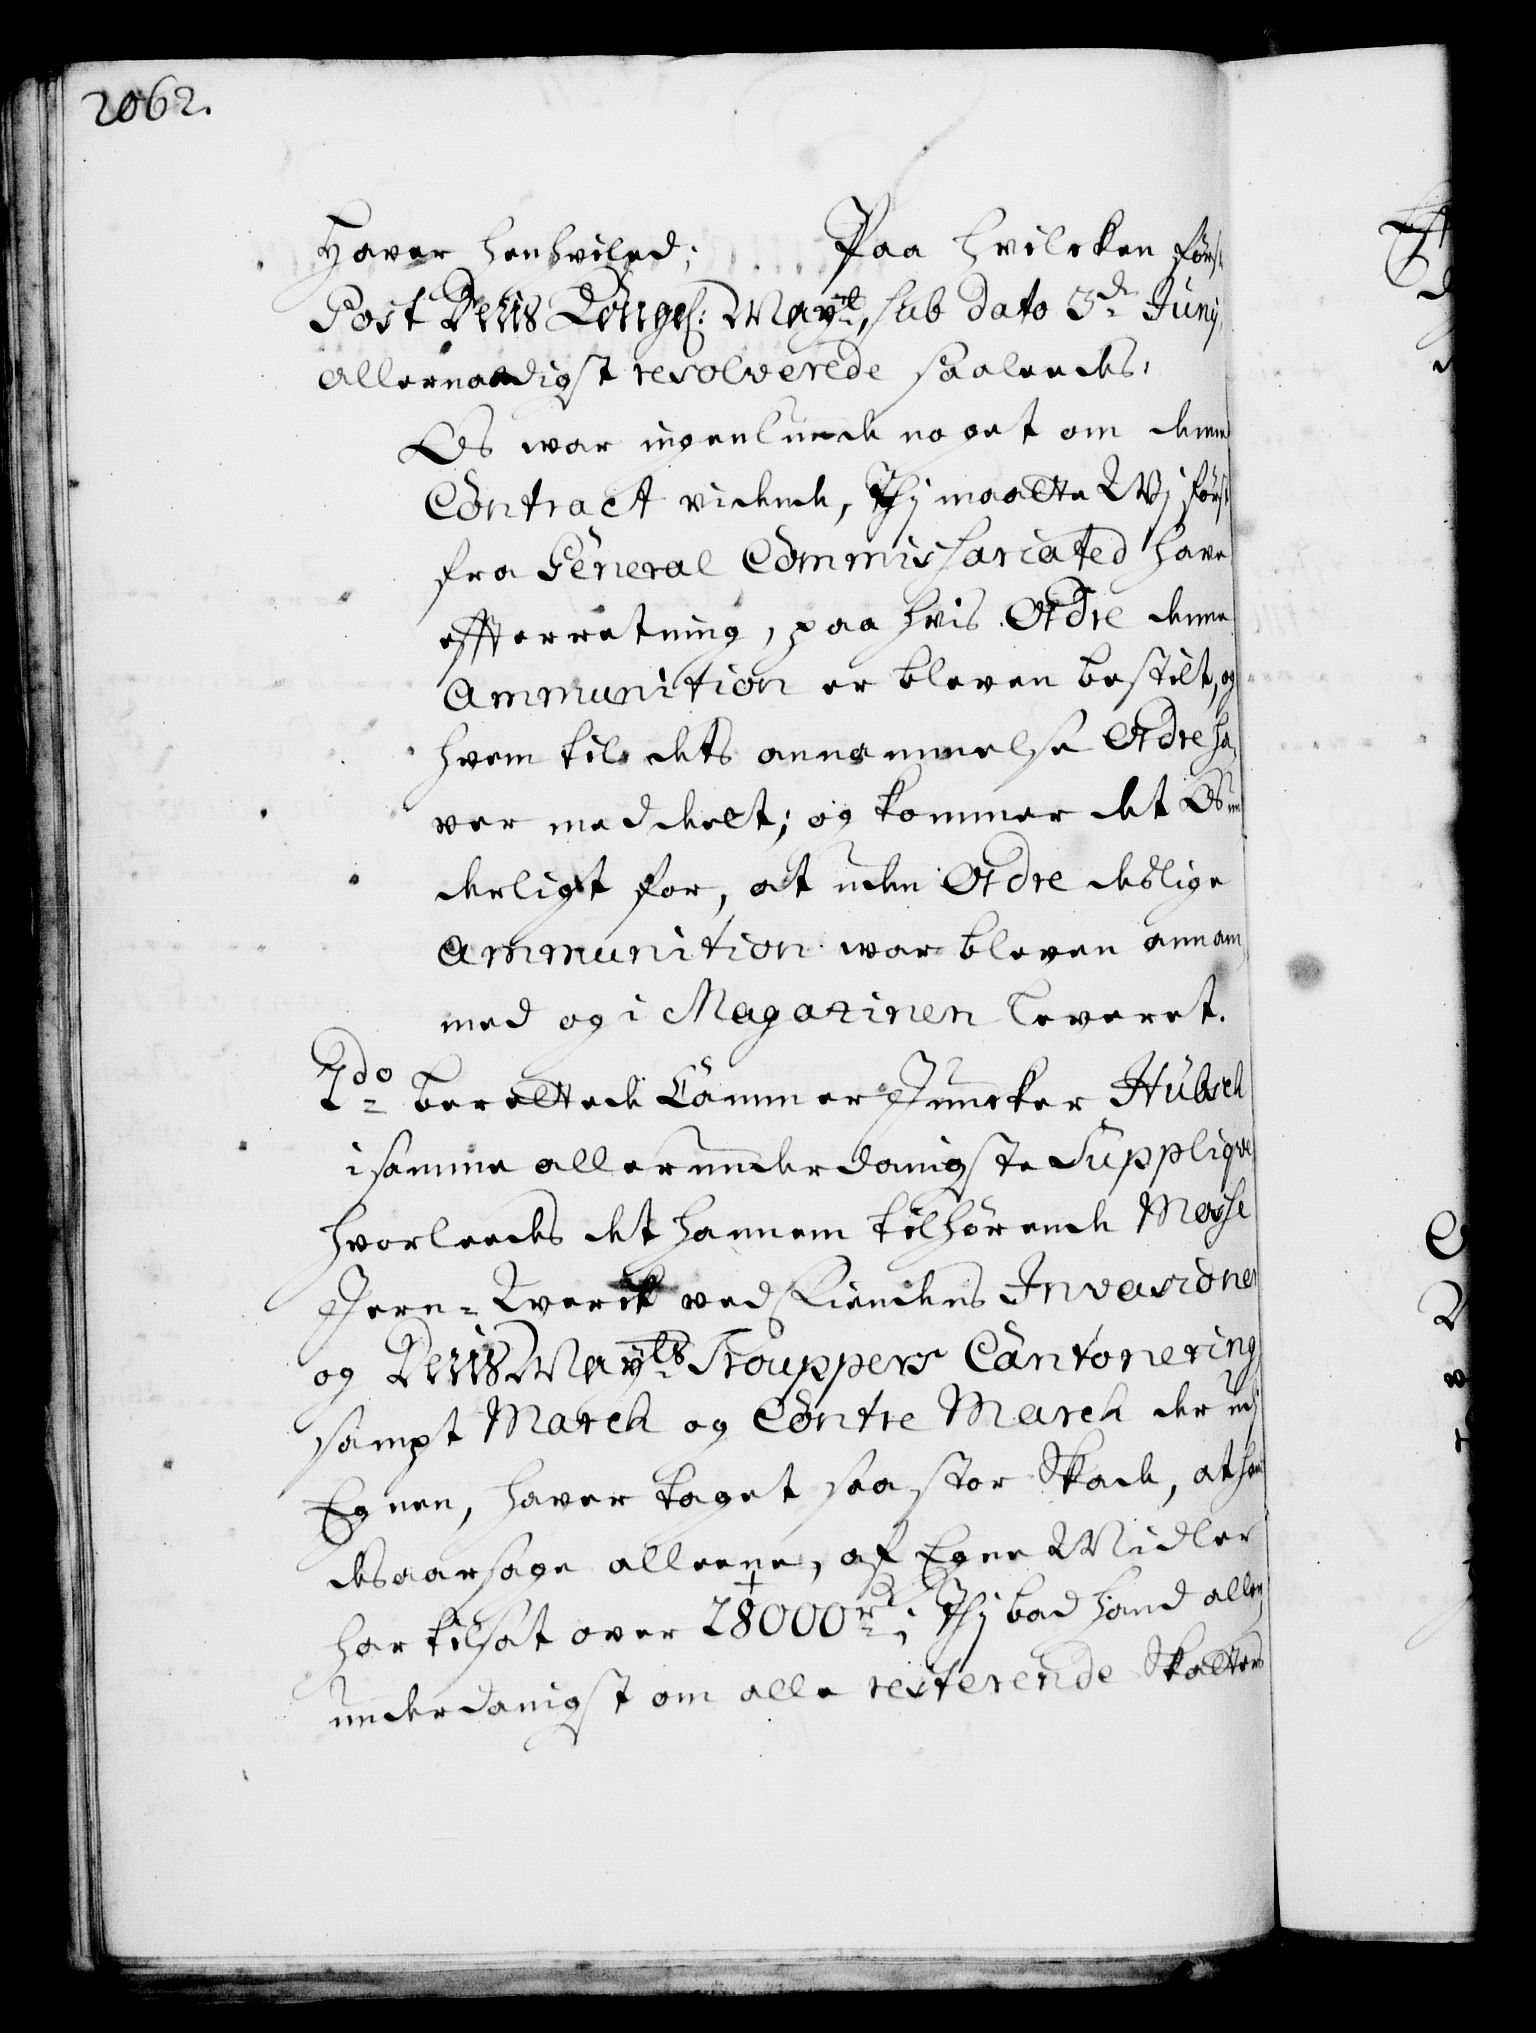 2062.
Haver henhviled; Paa hvilcken først
Post Deris Kongel: May.ts, sub dato 3.de Junij
allernaadigst resolverede saaleedes:
Os war ingenlunde noget om denne
Contract vidende, Thj maatte Wj først
fra General Commissariated have
effterretning, paa hvis Ordre denne
Ammunition er bleven bestilt, og
hvem til dets annammelse Ordre ha,
ver meddeelt; og kommer det Os un
derligt for, at uden Ordre deslige
Ammunition war bleven annam,
med og i Magazinen leveret.
2do berettede Cammer Juncker Hübsch
i samme allerunderdanigste Supplique
hvorleedes det hannem tilhørende Mosse
Jern-Werck ved Fiendens Invasioner
og Deris May.ts Trouppers Cantonering
sampt March og Contre March der udj
Egnen, haver taget saa stor Skade, at hand
desaarsage alleene, af Egne Midler
har tilsat over 28000 rd; Thj bad hand aller,
underdanigst om alle resterende Skatters